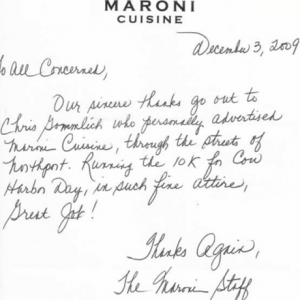 MARONI
CUISINE
December 3, 2009
To All Concerned,
Our sincere thanks go out to
Chris Gommlich who personally advertised
Maroni Cuisine, through the streets of
Northport. Running the 10K for Cow
Harbor Day, in such fine attire,
Great Job!
Thanks Again,
The Maroni Staff